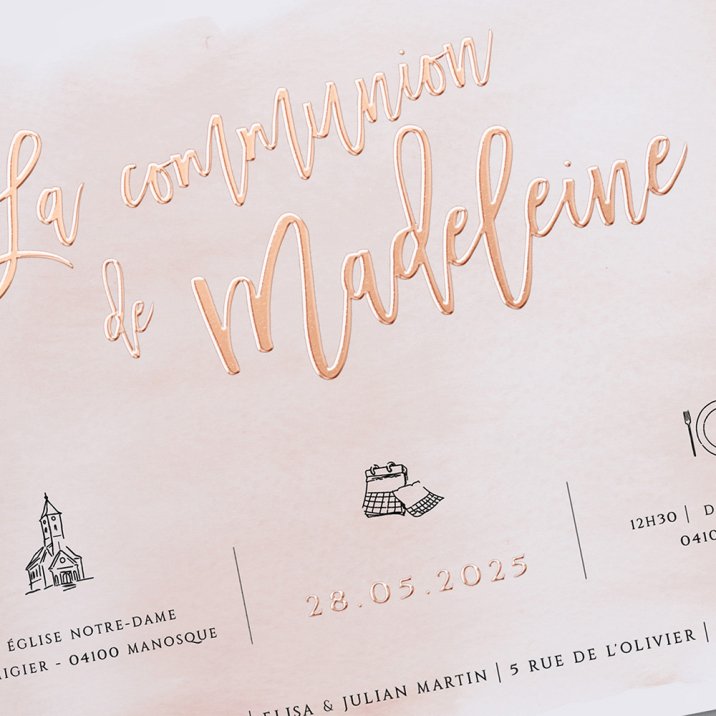 La communion
de Madeleine
ÉGLISE NOTRE-DAME
- 04100 MANOSQUE
28.05.2025
12H30 |
ELISA & JULIAN MARTIN | 5 RUE DE L'OLIVIER |